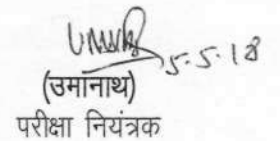 5.5.18
(उमानाथ)
परीक्षा नियंत्रक